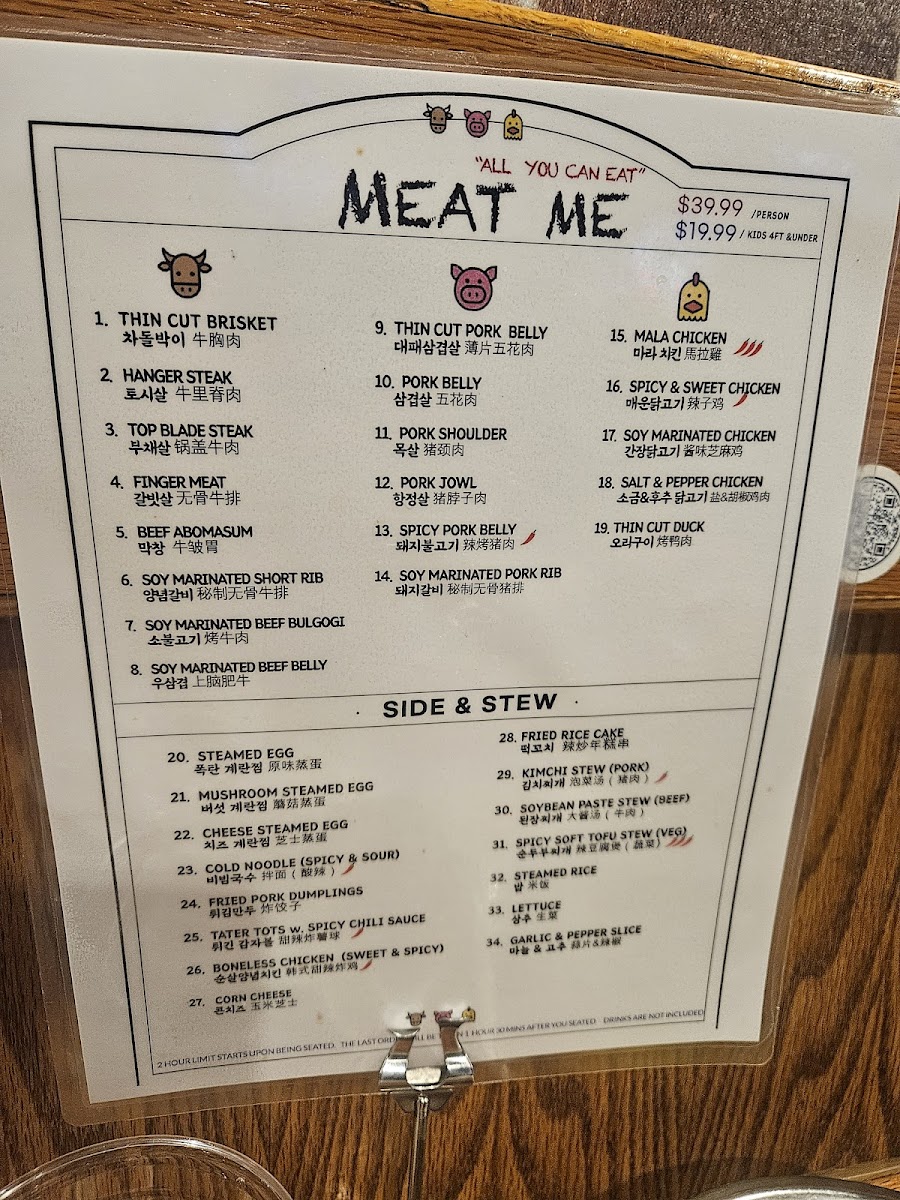 "ALL YOU CAN EAT"
MEAT ME
$39.99 /PERSON
$19.99 / KIDS 4FT &UNDER
1. THIN CUT BRISKET
차돌박이 牛胸肉
2. HANGER STEAK
토시살 牛里脊肉
3. TOP BLADE STEAK
부채살 锅盖牛肉
4. FINGER MEAT
갈빗살 无骨牛排
5. BEEF ABOMASUM
막창 牛皱胃
6. SOY MARINATED SHORT RIB
양념갈비 秘制无骨牛排
7. SOY MARINATED BEEF BULGOGI
소불고기 烤牛肉
8. SOY MARINATED BEEF BELLY
우삼겹 上脑肥牛
9. THIN CUT PORK BELLY
대패삼겹살 薄片五花肉
10. PORK BELLY
삼겹살 五花肉
11. PORK SHOULDER
목살 猪颈肉
12. PORK JOWL
항정살 猪脖子肉
13. SPICY PORK BELLY
돼지불고기 辣烤猪肉
14. SOY MARINATED PORK RIB
돼지갈비 秘制无骨猪排
15. MALA CHICKEN
마라 치킨 馬拉雞
16. SPICY & SWEET CHICKEN
매운닭고기 辣子鸡
17. SOY MARINATED CHICKEN
간장닭고기 酱味芝麻鸡
18. SALT & PEPPER CHICKEN
소금&후추 닭고기 盐&胡椒鸡肉
19. THIN CUT DUCK
오리구이 烤鸭肉
· SIDE & STEW ·
20. STEAMED EGG
폭탄 계란찜 原味蒸蛋
21. MUSHROOM STEAMED EGG
버섯 계란찜 蘑菇蒸蛋
22. CHEESE STEAMED EGG
치즈 계란찜 芝士蒸蛋
23. COLD NOODLE (SPICY & SOUR)
비빔국수 拌面 ( 酸辣 )
24. FRIED PORK DUMPLINGS
튀김만두 炸饺子
25. TATER TOTS w. SPICY CHILI SAUCE
튀긴 감자볼 甜辣炸薯球
26. BONELESS CHICKEN (SWEET & SPICY)
순살양념치킨 韩式甜辣炸鸡
27. CORN CHEESE
콘치즈 玉米芝士
28. FRIED RICE CAKE
떡꼬치 辣炒年糕串
29. KIMCHI STEW (PORK)
김치찌개 泡菜汤 ( 猪肉 )
30. SOYBEAN PASTE STEW (BEEF)
된장찌개 大酱汤 ( 牛肉 )
31. SPICY SOFT TOFU STEW (VEG)
순두부찌개 辣豆腐煲 ( 蔬菜 )
32. STEAMED RICE
밥 米饭
33. LETTUCE
상추 生菜
34. GARLIC & PEPPER SLICE
마늘 & 고추 蒜片&辣椒
2 HOUR LIMIT STARTS UPON BEING SEATED. THE LAST 1 HOUR 30 MINS AFTER YOU SEATED DRINKS ARE NOT INCLUDED